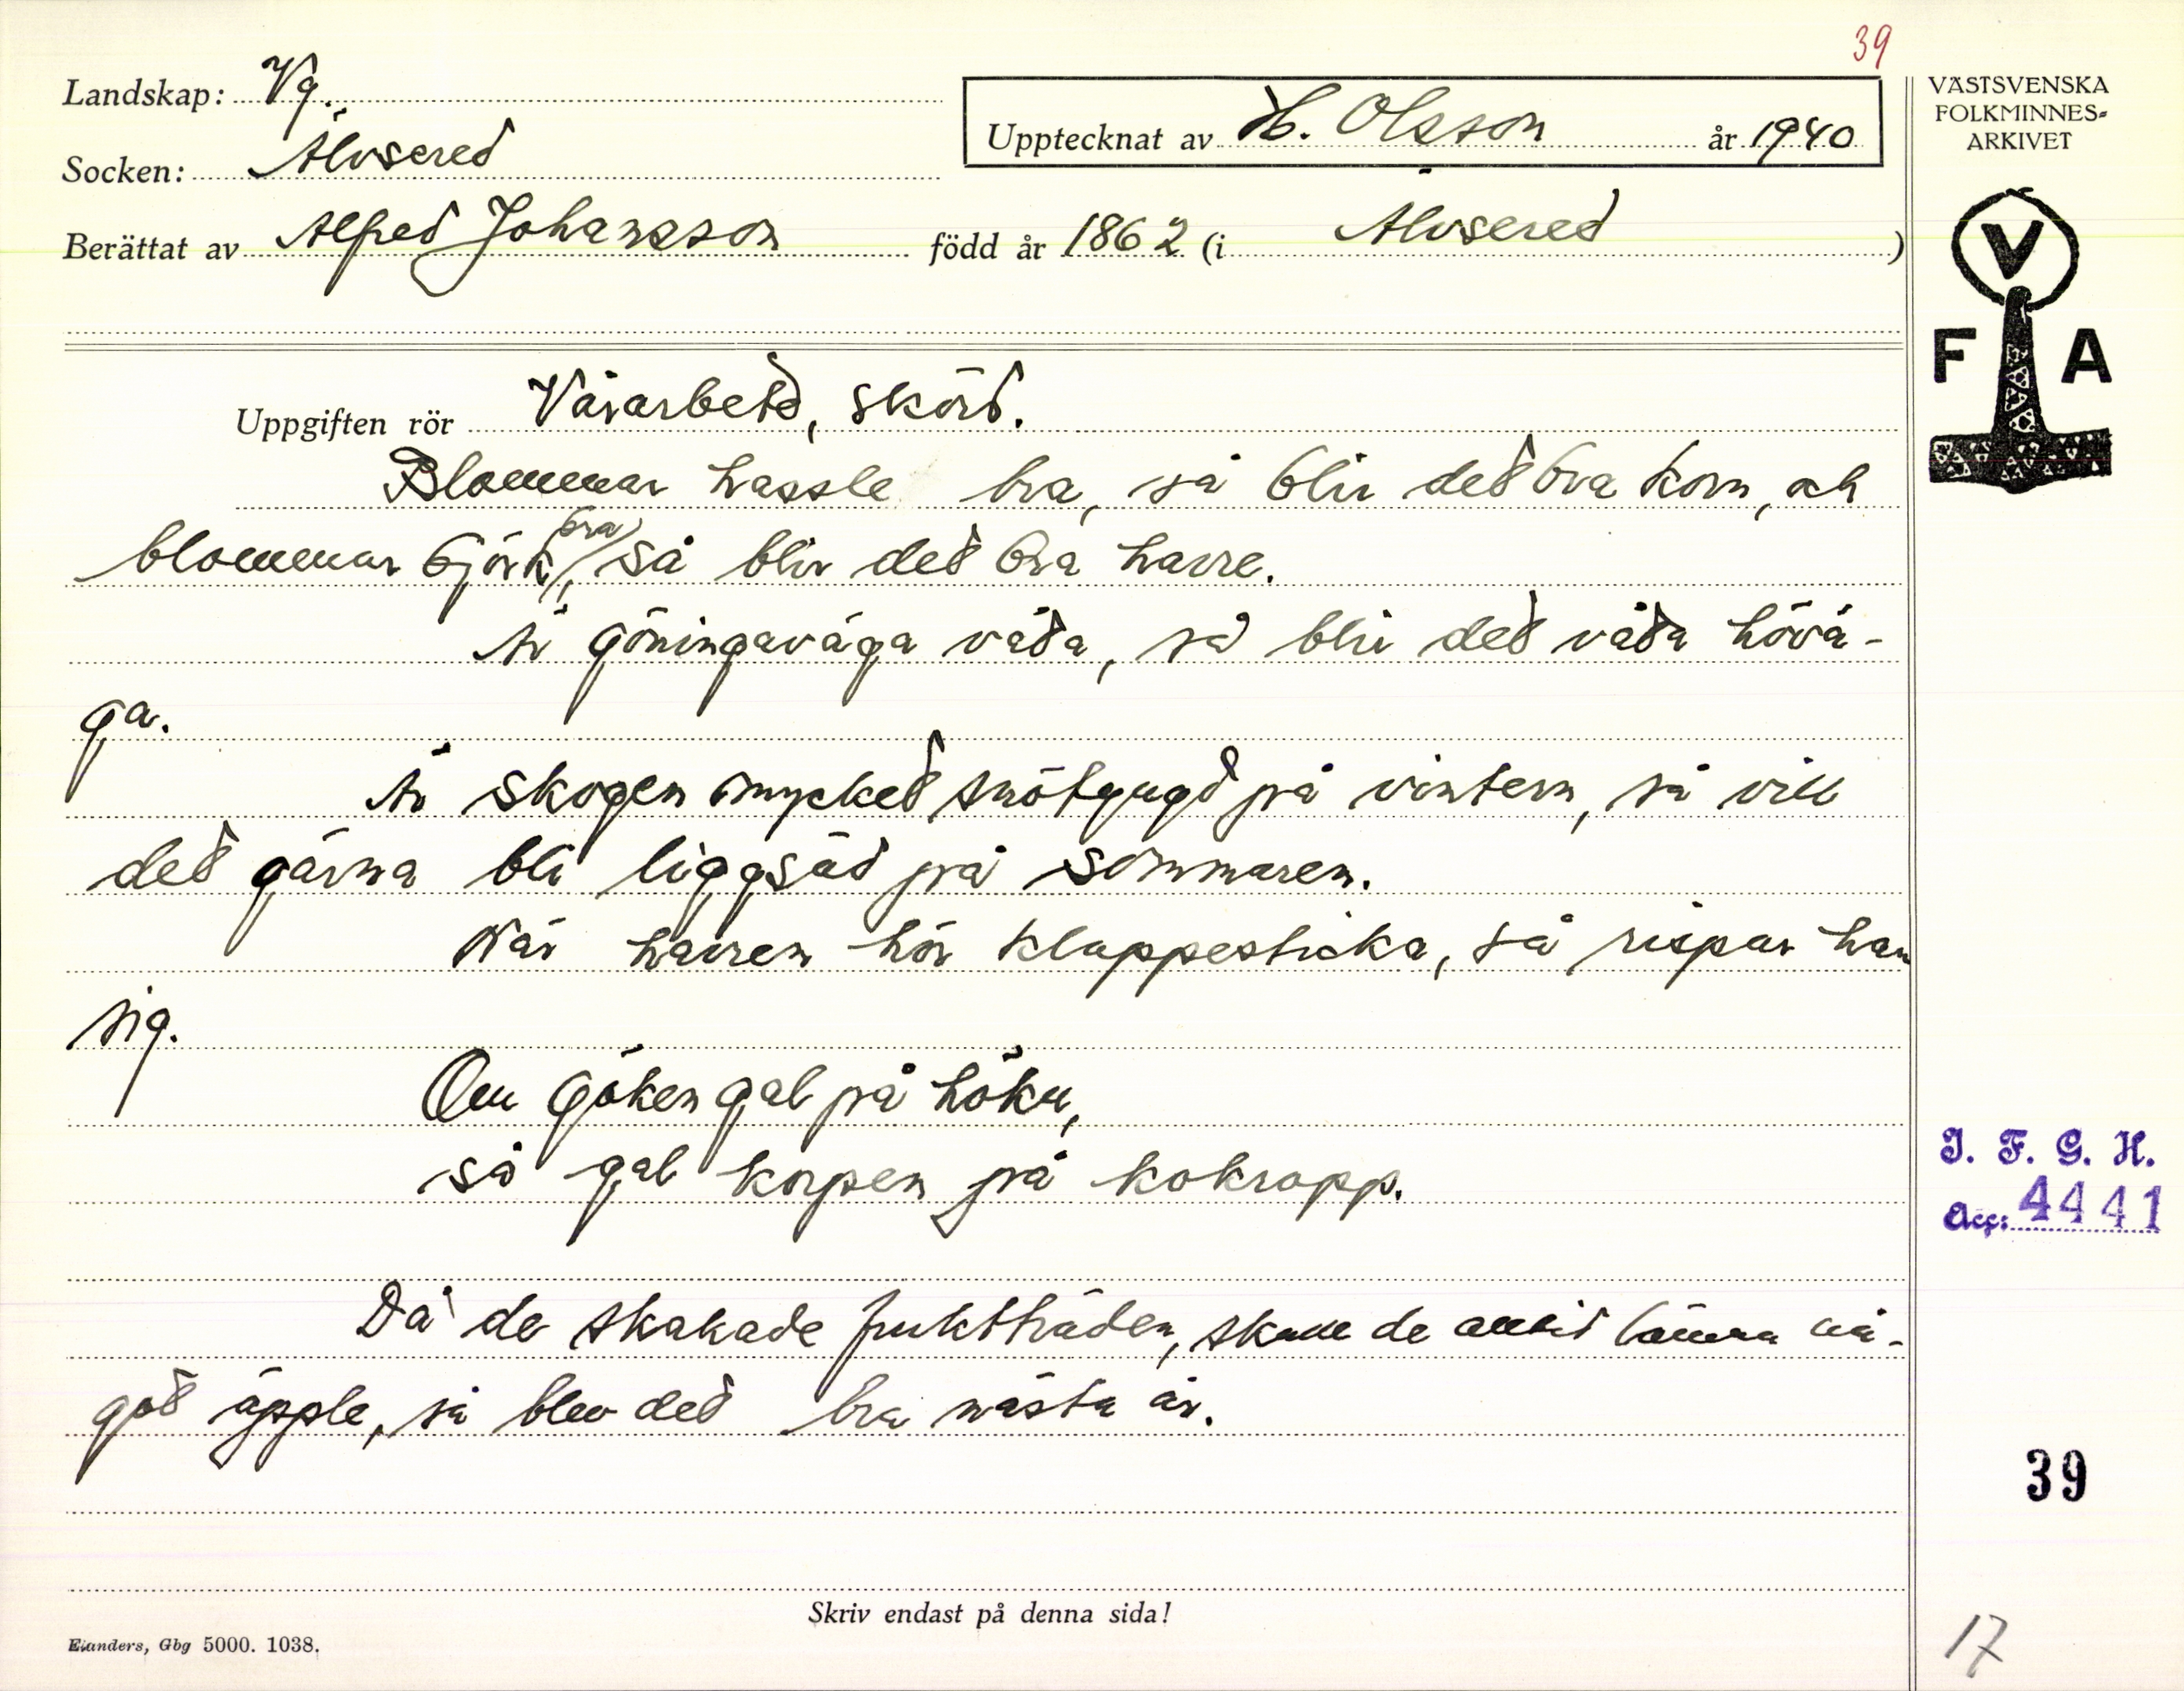 39
Landskap: Vg.
Socken: Älvsered
Upptecknat av H. Olsson år 1940
Berättat av Alfred Johansson född år 1862 (i Älvsered)
VÄSTSVENSKA
FOLKMINNES-
ARKIVET
V
F A
Uppgiften rör Vårarbete, skörd.
Blommar hassle bra, så blir det bra korn, och
blommar björk bra, så blir det bra havre.
Är göningavága våta, så blir det våta hövå-
ga.
Är skogen mycket snötyngd på vintern, så vill
det gärna bli liggsäd på sommaren.
När havren hör klappesticka, så rispar han
sig.
Om göken gal på höku,
så gal korpen på kokropp.
Då de skakade fruktträden, skulle de alltid lämna nå-
got äpple, så blev det bra nästa år.
I. F. G. H.
Acc: 4441
39
Skriv endast på denna sida!
Elanders, Gbg 5000. 1038.
17